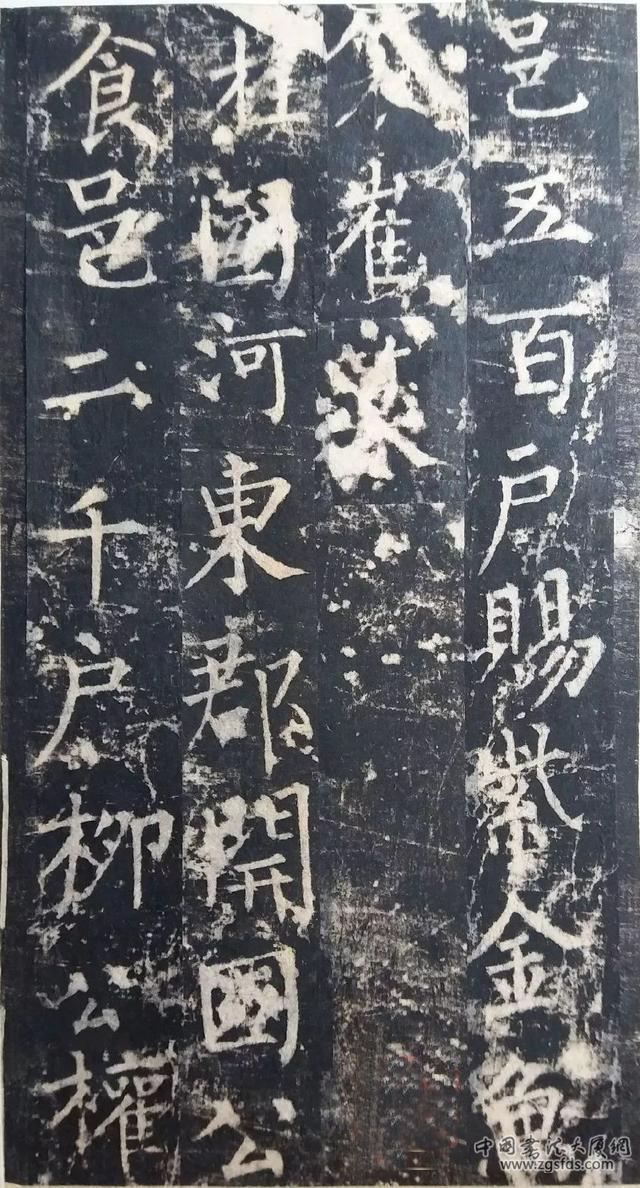 邑五百戶賜紫金魚
袋崔
柱國河東郡開國公
食邑二千戶柳公權
中国書法大厦網
www.zgsfds.com